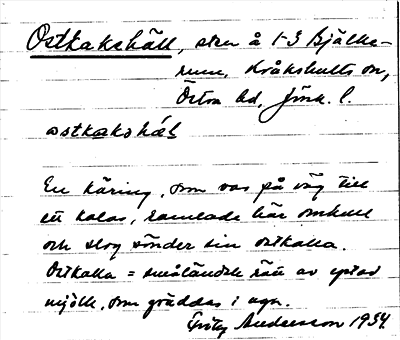 Ostkakshäll, sten å 1-3 Bjälke-
rum, Kråkshults sn,
Östra hd, Jönk. l.
ostkakshäl
En käring, som var på väg till
ett kalas, ramlade här omkull
och slog sönder sin ostkaka.
Ostkaka = småländsk rätt av ystad
mjölk, som gräddas i ugn.
Fritz Andersson 1934.